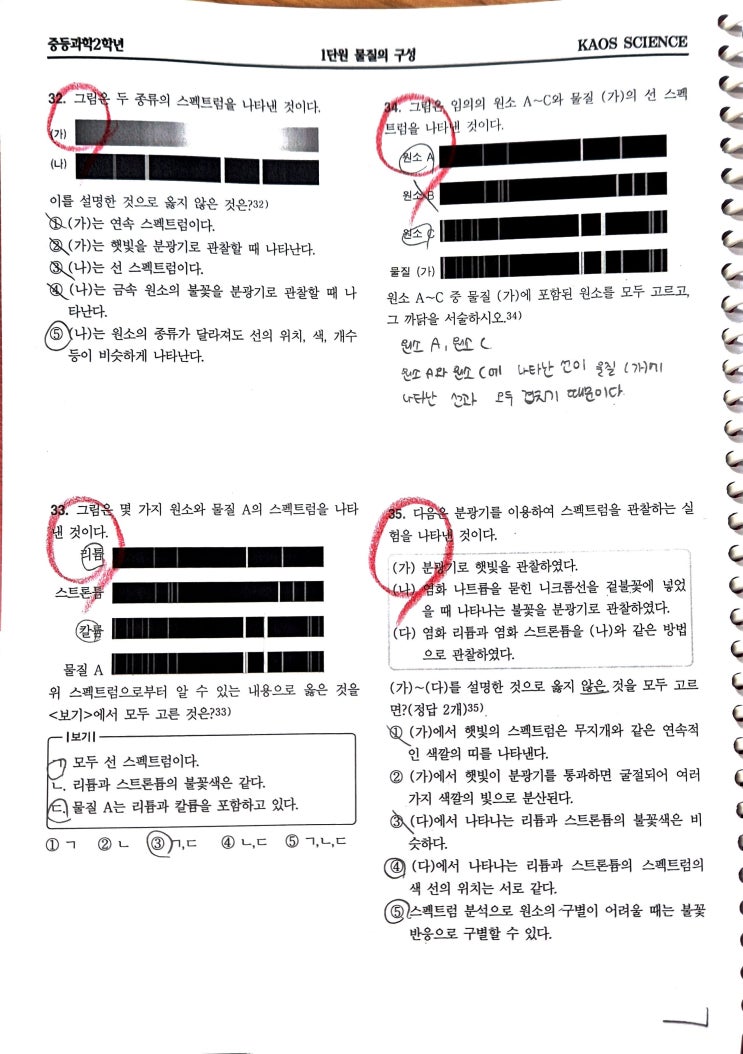 중등과학2학년
1단원 물질의 구성
KAOS SCIENCE
32. 그림은 두 종류의 스펙트럼을 나타낸 것이다.
(가)
(나)
이를 설명한 것으로 옳지 않은 것은?32)
① (가)는 연속 스펙트럼이다.
② (가)는 햇빛을 분광기로 관찰할 때 나타난다.
③ (나)는 선 스펙트럼이다.
④ (나)는 금속 원소의 불꽃을 분광기로 관찰할 때 나
타난다.
⑤ (나)는 원소의 종류가 달라져도 선의 위치, 색, 개수
등이 비슷하게 나타난다.
33. 그림은 몇 가지 원소와 물질 A의 스펙트럼을 나타
낸 것이다.
리튬
스트론튬
칼륨
물질 A
위 스펙트럼으로부터 알 수 있는 내용으로 옳은 것을
<보기>에서 모두 고른 것은?33)
|보기|
ㄱ. 모두 선 스펙트럼이다.
ㄴ. 리튬과 스트론튬의 불꽃색은 같다.
ㄷ. 물질 A는 리튬과 칼륨을 포함하고 있다.
① ㄱ ② ㄴ ③ ㄱ,ㄷ ④ ㄴ,ㄷ ⑤ ㄱ,ㄴ,ㄷ
34. 그림은 임의의 원소 A~C와 물질 (가)의 선 스펙
트럼을 나타낸 것이다.
원소 A
원소 B
원소 C
물질 (가)
원소 A~C 중 물질 (가)에 포함된 원소를 모두 고르고,
그 까닭을 서술하시오.34)
원소 A, 원소 C
원소 A와 원소 C에 나타난 선이 물질 (가)에
나타난 선과 모두 겹치기 때문이다.
35. 다음은 분광기를 이용하여 스펙트럼을 관찰하는 실
험을 나타낸 것이다.
(가) 분광기로 햇빛을 관찰하였다.
(나) 염화 나트륨을 묻힌 니크롬선을 겉불꽃에 넣었
을 때 나타나는 불꽃을 분광기로 관찰하였다.
(다) 염화 리튬과 염화 스트론튬을 (나)와 같은 방법
으로 관찰하였다.
(가)~(다)를 설명한 것으로 옳지 않은 것을 모두 고르
면?(정답 2개)35)
① (가)에서 햇빛의 스펙트럼은 무지개와 같은 연속적
인 색깔의 띠를 나타낸다.
② (가)에서 햇빛이 분광기를 통과하면 굴절되어 여러
가지 색깔의 빛으로 분산된다.
③ (다)에서 나타나는 리튬과 스트론튬의 불꽃색은 비
슷하다.
④ (다)에서 나타나는 리튬과 스트론튬의 스펙트럼의
색 선의 위치는 서로 같다.
⑤ 스펙트럼 분석으로 원소의 구별이 어려울 때는 불꽃
반응으로 구별할 수 있다.